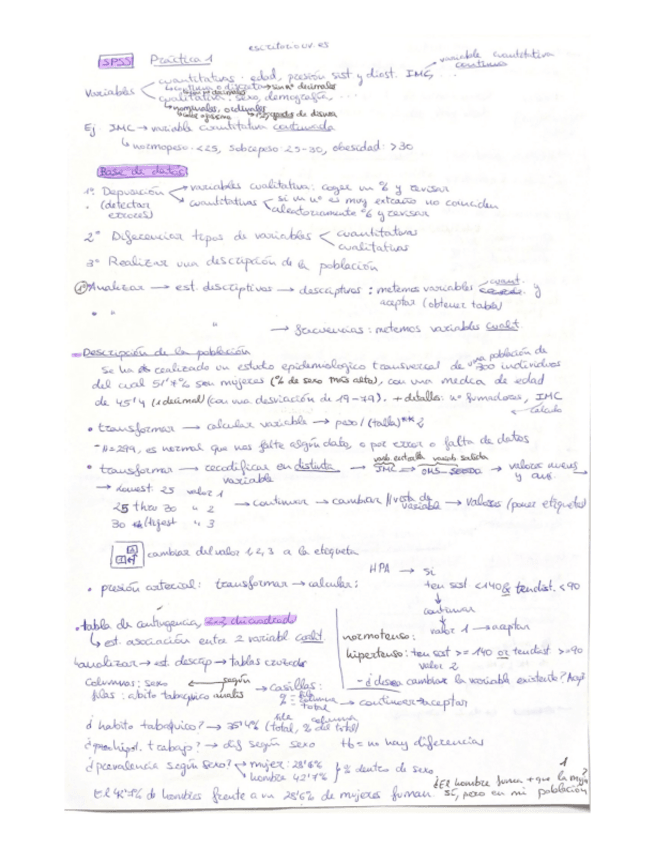 escritorio.uv.es
SPSS Práctica 1
variable cuantitativa
continua
Variables
cuantitativas: edad, presión sist y diast. IMC,
cualitativa: sexo, demografía, ...
nominales, ordinales
Ej. IMC → variable cuantitativa continuada
↳ normopeso: <25, sobrepeso: 25-30, obesidad: >30
Base de datos
1º Depuración
variables cualitativa: coger un % y revisar
(detectar errores)
cuantitativas
si un nº es muy extraño no coinciden
aleatoriamente % y revisar
2º Diferenciar tipos de variables < cuantitativas
cualitativas
3º Realizar una descripción de la población
1º Analizar → est. descriptivos → descriptivos: metemos variables cuant. y
aceptar (obtener tabla)
" " " → frecuencias: metemos variables cualit.
- Descripción de la población
Se ha realizado un estudio epidemiologico transversal de una población de 300 individuos
del cual 51'7% son mujeres (% de sexo más alto), con una media de edad
de 45'4 (1 decimal) (con una desviación de 19-79). + detalles: nº fumadores, IMC
← calculo
• transformar → calcular variable → peso/(talla)**2
- N=299, es normal que nos falte algún dato, o por error o falta de datos
• transformar → recodificar en distinta variable → IMC → → valores nuevos
y ant. →
→ Lowest: 25 valor 1
25 thru 30 " 2
30 Higest " 3
→ continuar → cambiar // vista de variable → valores (poner etiqueta)
cambiar del valor 1, 2, 3 a la etiqueta
• presión arterial: transformar → calcular:
HPA → si
ten sist <140 & tendist. <90
continuar
valor 1 → aceptar
normotenso:
hipertenso: ten sist >= 140 or tendist >=90
valor 2
- ¿desea cambiar la variable existente? Acep
• tabla de contingencia, 2x2 chi cuadrado
↳ est. asociación entre 2 variabl. cualit.
↳ analizar → est. descrip → tablas cruzadas
Columnas: sexo
según
filas: abito tabaquico
→ casillas:
% = fila
columna
total
→ continuar → aceptar
¿habito tabaquico? → 35'4% (total, % del total)
fila columna
¿ trabajo? → dif según sexo tb = no hay diferencias
¿prevalencia según sexo? mujer: 28'6%
hombre 42'7%
} % dentro de sexo
El 42'7% de hombres frente a un 28'6% de mujeres fuman.
1
¿El hombre fuma + que la mujer?
Sí, pero en mi población